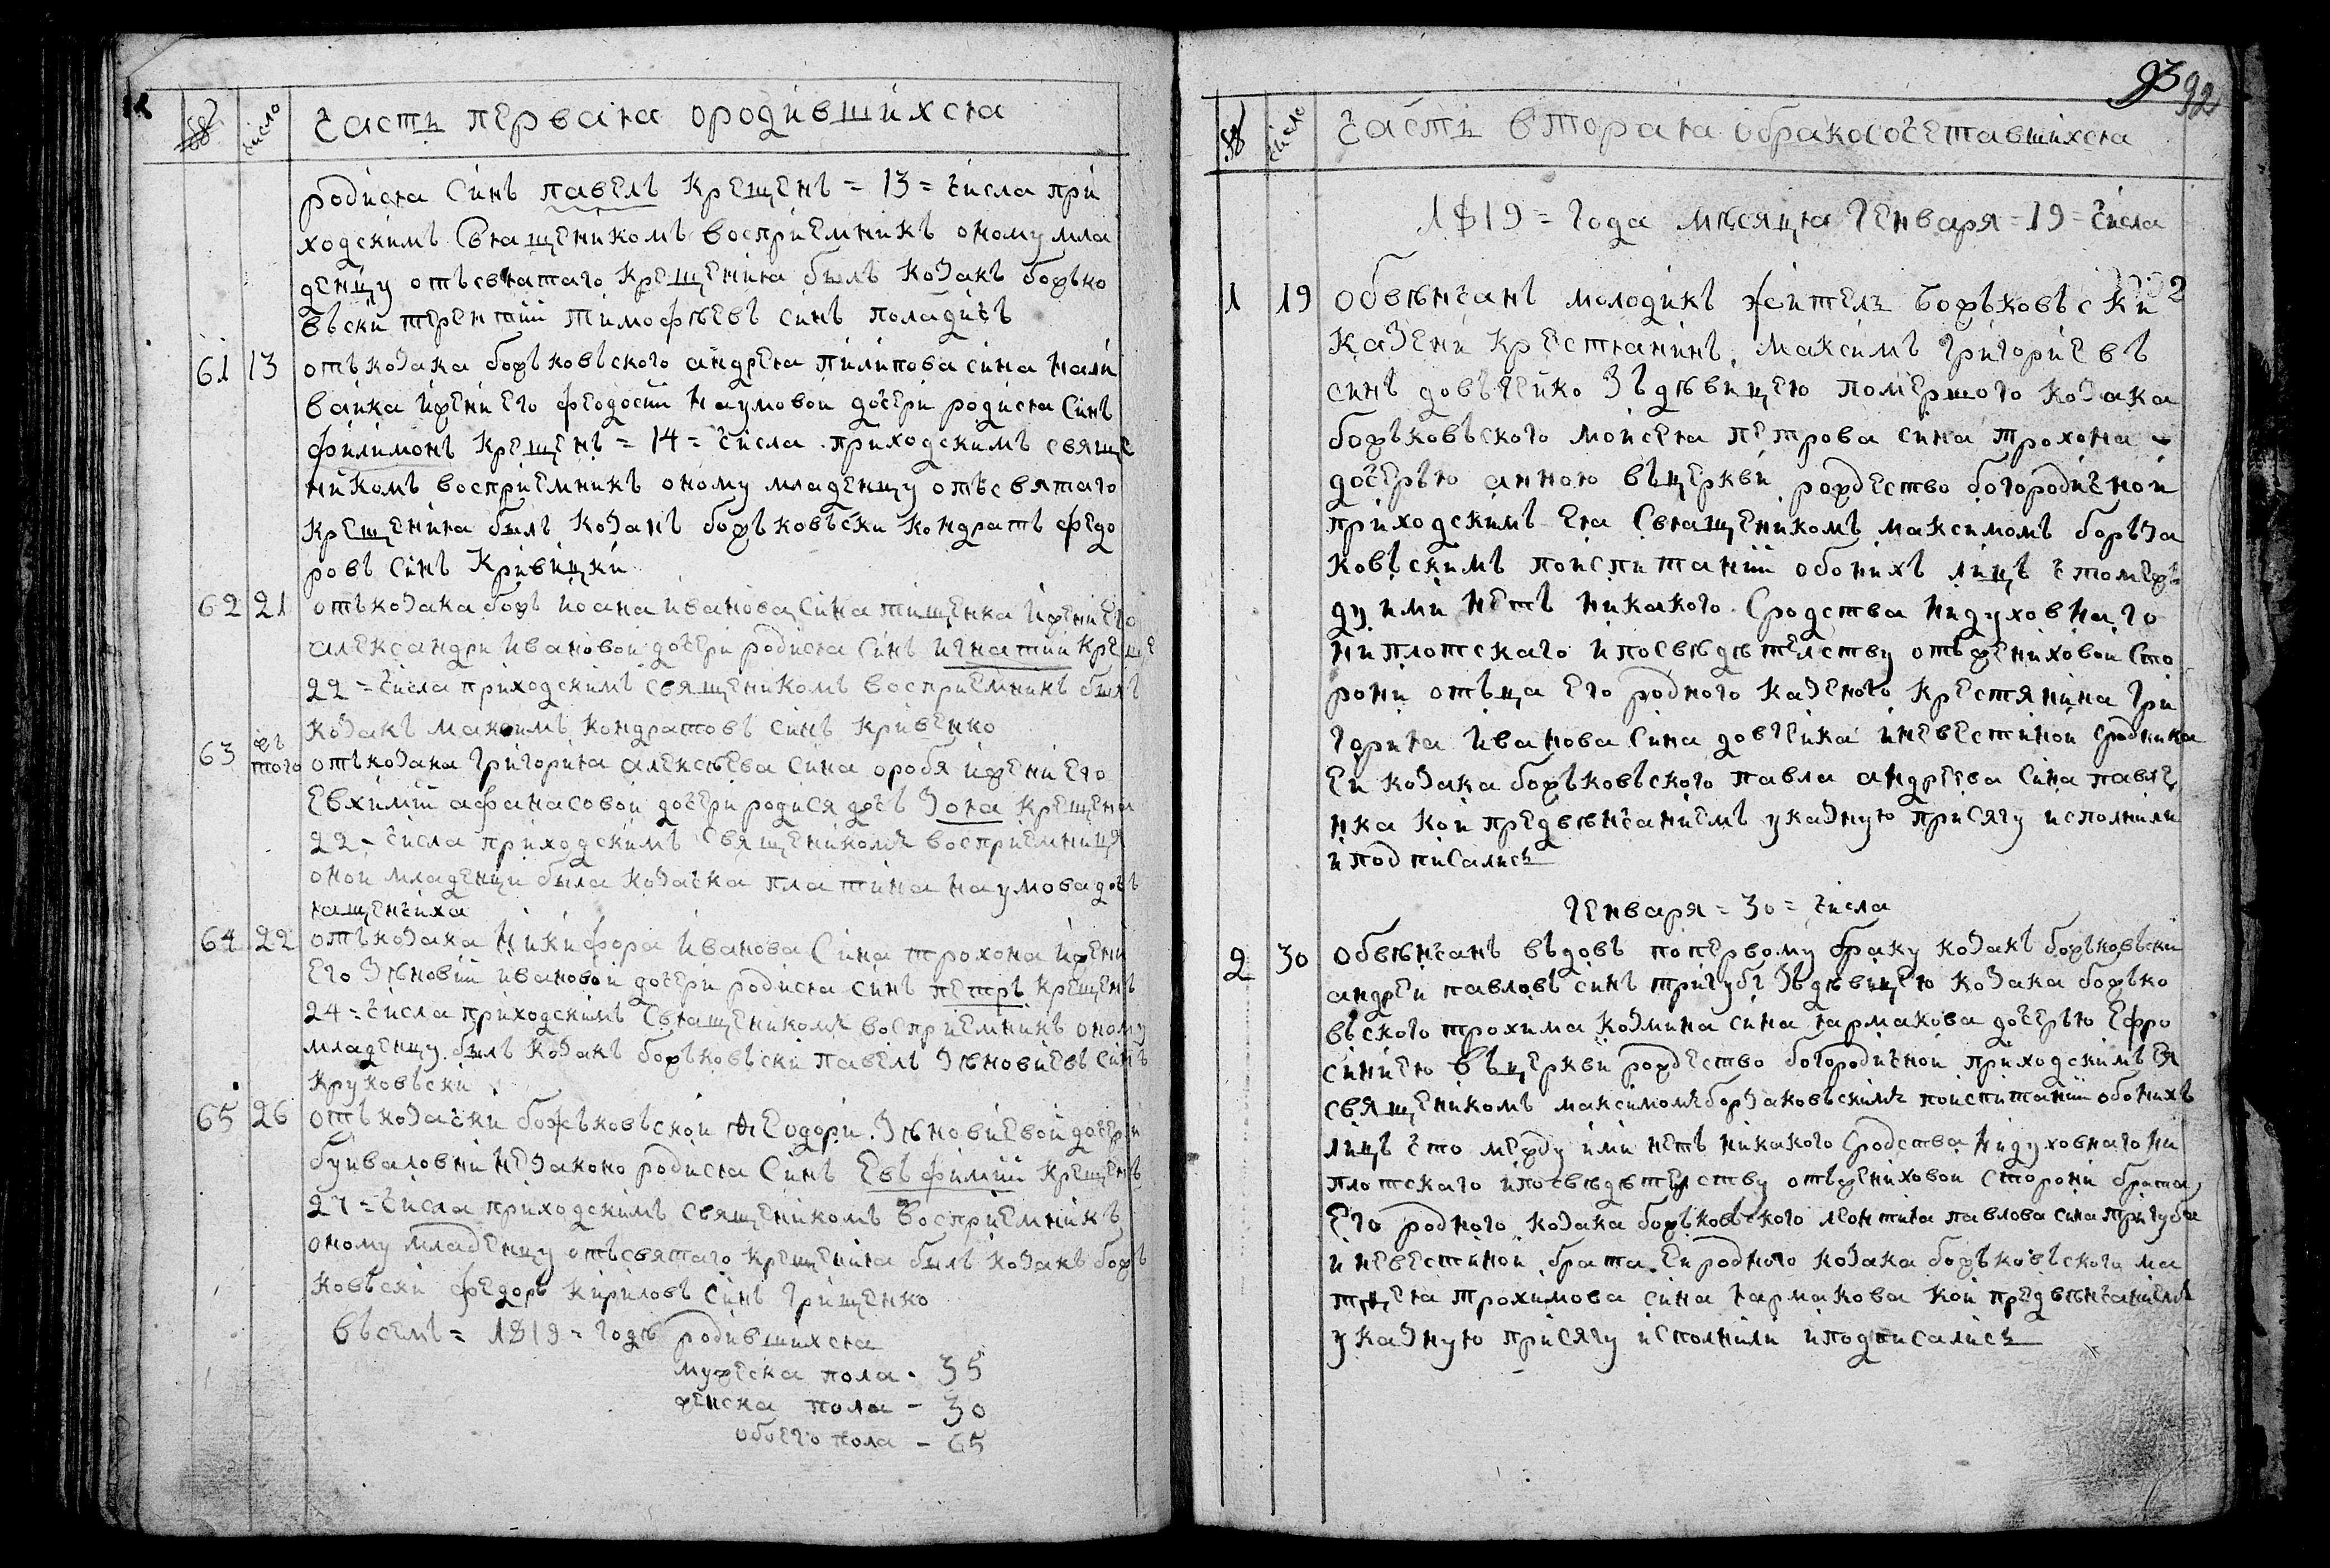 число
часть первая ородившихся
родися синъ павелъ крещенъ = 13 = числа при
ходскимъ священикомъ воспріемникъ оному мла
денцу отъсвятаго крещенія былъ козакъ божко
въски терентій тимофѣевъ синъ поладичъ
61 13 отъкозака божъковъского андрея пилипова сина нали
вайка ижени его феодосіи наумовой дочери родися синъ
филимонъ крещенъ = 14 = числа приходскимъ свяще
никомъ воспріемникъ оному младенцу отъсвятаго
крещенія былъ козакъ божъковъски кондратъ федо
ровъ синъ кривицки
62 21 отъкозака божъ иоана иванова сина тищенка ижени его
александри ивановой дочери родися синъ игнатій креще
22 = числа приходскимъ священикомъ воспріемникъ былъ
козакъ максимъ кондратовъ синъ кривенко
63 того отъкозака григорія алексѣева сина оробя ижени его
евхиміи афанасовой дочери родися дочъ зоя крещена
22 = числа приходскимъ священикомъ воспріемниця
оной младенци была козачка платина наумова дочъ
ященчиха
64 22 отъкозака никифора иванова сина трохона ижени
его зѣновіи ивановой дочери родися синъ петръ крещенъ
24 = числа приходскимъ священикомъ воспріемникъ оному
младенцу былъ козакъ божъковъски павелъ зѣновіевъ синъ
круковъски
65 26 отъкозачки божъковъской феодори зѣновіевой дочери
буйваловни незаконо родися синъ евъфимій крещенъ
27 = числа приходскимъ священикомъ воспріемникъ
оному младенцу отъсвятаго крещенія былъ козакъ божъ
ковъски федоръ кириловъ синъ грищенко
въсемъ = 1819 = годѣ родившихся
мужеска пола - 35
женска пола - 30
обоего пола - 65
93 92
число
часть вторая обракосочетавшихся
1819 = года мѣсяца генваря = 19 = числа
1 19 обвѣнчанъ молодикъ житель божъковъски
казени крестянинъ максимъ григоріевъ
синъ довъгейко зъдѣвицею помершого козака
божъковъского моисея петрова сина трохона
дочерью анною въцеркви рождество богородичной
приходскимъ ея священикомъ максимомъ борзаа
ковъскимъ поиспитаніи обоихъ лицъ что меж
ду ими нетъ никакого сродства нидуховнаго
ни плотскаго и посвѣдѣтелству отъжениховой сто
рони отъца его родного казеного крестянина гри
горія иванова сина довгейка иневестиной сродника
ей козака божъковъского павла андреева сина павле
нка кои предвѣнчаніемъ указную присягу исполнили
и подписались
генваря = 30 = числа
2 30 обвѣнчанъ въдовъ попервому браку козакъ божъковъски
андрей павловъ синъ тригубъ зъдѣвицею козака божко
въского трохима козмина сина ярмакова дочерью ефро
синіею въцеркви рождество богородичной приходскимъ ея
священикомъ максимомъ борзаковъскимъ поиспитаніи обоихъ
лицъ что между ими нетъ никакого сродства нидуховнаго ни
плотскаго ипосвѣдѣтелству отъжениховой сторони брата
его родного козака божъковъского леонтія павлова сина тригуба
и невестиной брата ей родного козака божъковъского ма
тцея трохимова сина ярмакова кои предвѣнчаніемъ
указную присягу исполнили иподписались